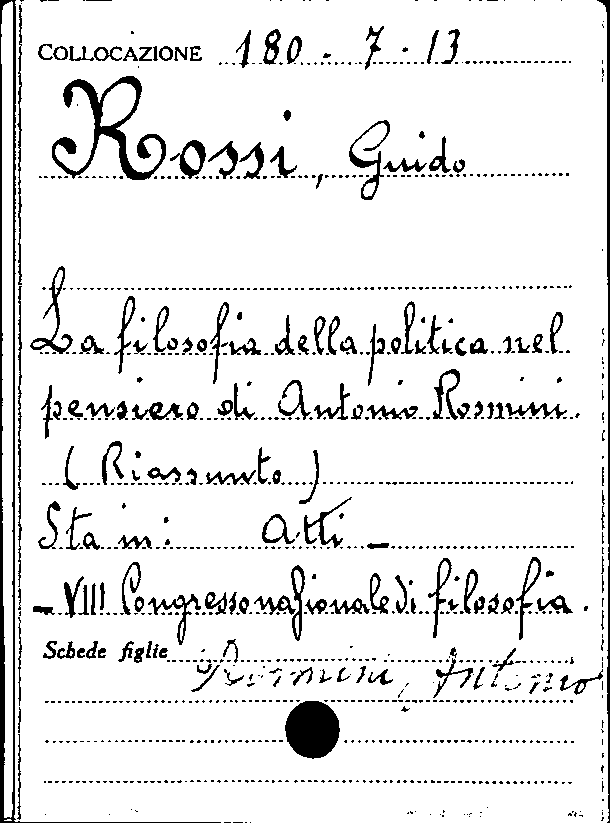 COLLOCAZIONE 180 - 7 - 13
Rossi, Guido
La filosofia della politica nel
pensiero di Antonio Rosmini.
(Riassunto)
Sta in: Atti -
- VIII Congresso nazionale di filosofia.
Schede figlie
Rosmini, Antonio